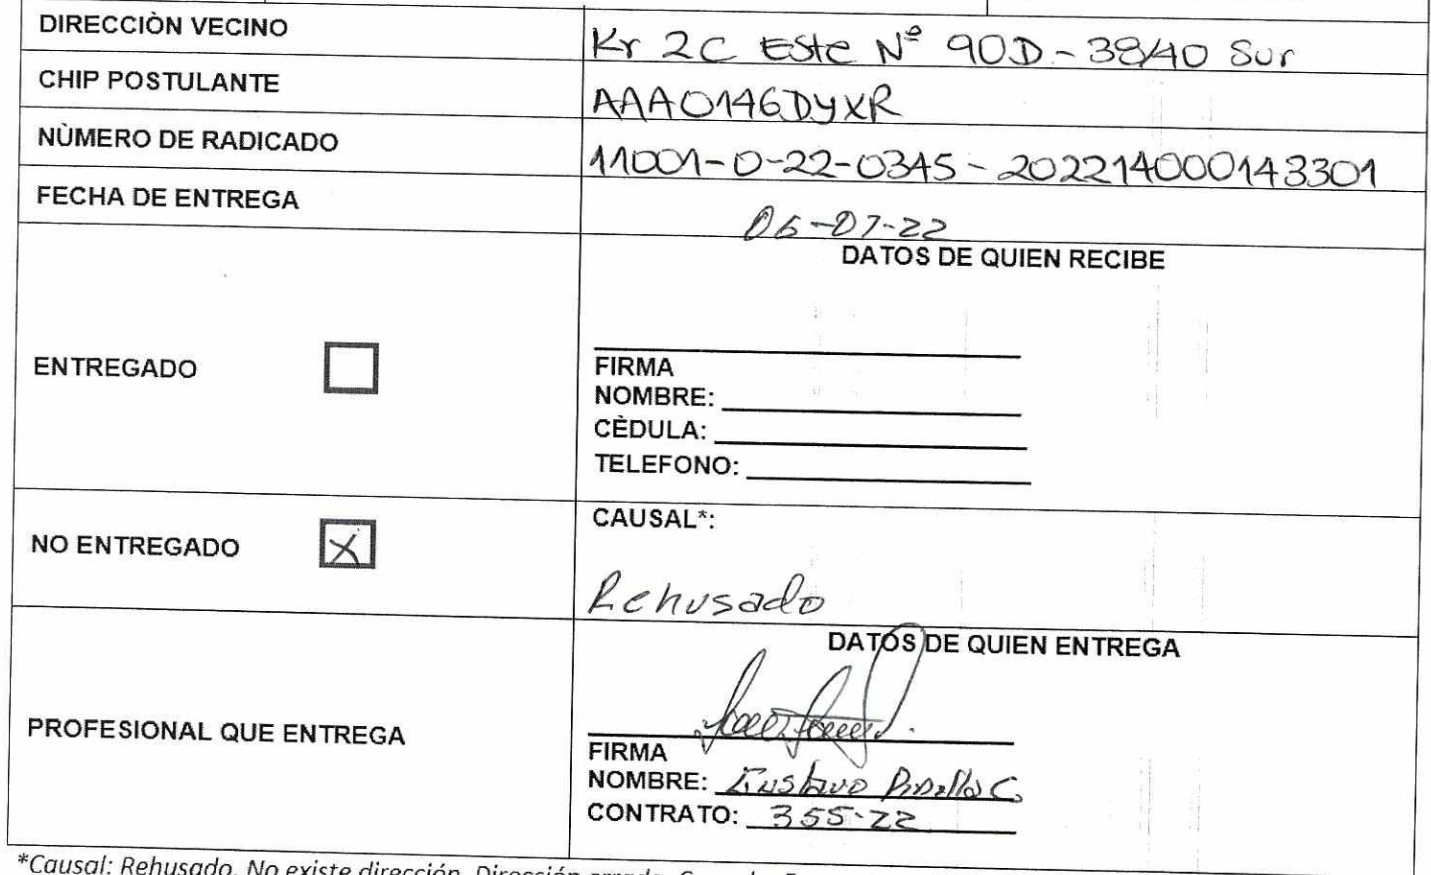 DIRECCIÒN VECINO
Kr 2C Este Nº 90D - 38/40 Sur
CHIP POSTULANTE
AAA0146DYXR
NÙMERO DE RADICADO
11001-0-22-0345 - 202214000143301
FECHA DE ENTREGA
06-07-22
DATOS DE QUIEN RECIBE
ENTREGADO
FIRMA
NOMBRE:
CÈDULA:
TELEFONO:
NO ENTREGADO X
CAUSAL*:
Rehusado
DATOS DE QUIEN ENTREGA
PROFESIONAL QUE ENTREGA
FIRMA
NOMBRE: Gustavo
CONTRATO: 355-22
*Causal: Rehusado, No existe dirección, Dirección errada,